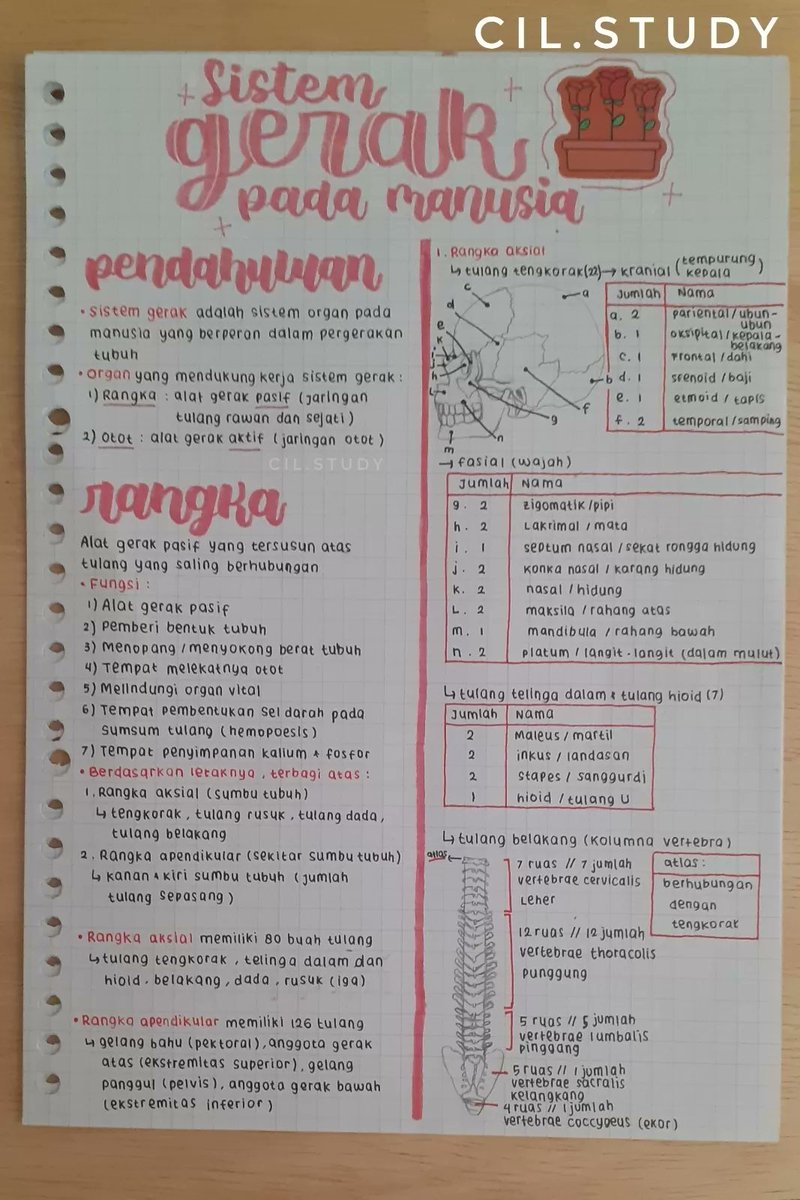 CIL.STUDY
Sistem
gerak
pada manusia
pendahuluan
• Sistem gerak adalah sistem organ pada
manusia yang berperan dalam pergerakan
tubuh
• Organ yang mendukung kerja sistem gerak :
1) Rangka : alat gerak pasif (jaringan
tulang rawan dan sejati)
2) Otot : alat gerak aktif (jaringan otot)
CIL.STUDY
rangka
Alat gerak pasif yang tersusun atas
tulang yang saling berhubungan
• Fungsi :
1) Alat gerak pasif
2) Pemberi bentuk tubuh
3) Menopang / menyokong berat tubuh
4) Tempat melekatnya otot
5) Melindungi organ vital
6) Tempat pembentukan sel darah pada
sumsum tulang (hemopoesis)
7) Tempat penyimpanan kalium & fosfor
• Berdasarkan letaknya, terbagi atas :
1. Rangka aksial (sumbu tubuh)
↳ tengkorak, tulang rusuk, tulang dada,
tulang belakang
2. Rangka apendikular (sekitar sumbu tubuh)
↳ kanan & kiri sumbu tubuh (jumlah
tulang sepasang)
• Rangka aksial memiliki 80 buah tulang
↳ tulang tengkorak, telinga dalam dan
hioid. belakang, dada, rusuk (iga)
• Rangka apendikular memiliki 126 tulang
↳ gelang bahu (pektoral), anggota gerak
atas (ekstremitas superior), gelang
panggul (pelvis), anggota gerak bawah
(ekstremitas inferior)
1. Rangka aksial
↳ tulang tengkorak (22) → kranial (tempurung
kepala)
c
a
d
e
k
i
j
h
L
b
f
g
n
m
Jumlah Nama
a. 2 pariental / ubun-
ubun
b. 1 oksipital / kepala-
belakang
c. 1 frontal / dahi
d. 1 sfenoid / baji
e. 1 etmoid / tapis
f. 2 temporal / samping
→ fasial (wajah)
Jumlah Nama
g. 2 zigomatik / pipi
h. 2 Lakrimal / mata
i. 1 septum nasal / sekat rongga hidung
j. 2 konka nasal / karang hidung
k. 2 nasal / hidung
L. 2 maksila / rahang atas
m. 1 mandibula / rahang bawah
n. 2 platum / langit-langit (dalam mulut)
↳ tulang telinga dalam & tulang hioid (7)
Jumlah Nama
2 Maleus / martil
2 inkus / landasan
2 stapes / sanggurdi
1 hioid / tulang U
↳ tulang belakang (kolumna vertebra)
atlas
7 ruas // 7 jumlah
vertebrae cervicalis
Leher
atlas :
berhubungan
dengan
tengkorak
12 ruas // 12 jumlah
vertebrae thoracolis
punggung
5 ruas // 5 jumlah
vertebrae lumbalis
pinggang
5 ruas // 1 jumlah
vertebrae sacralis
kelangkang
4 ruas // 1 jumlah
vertebrae coccygeus (ekor)